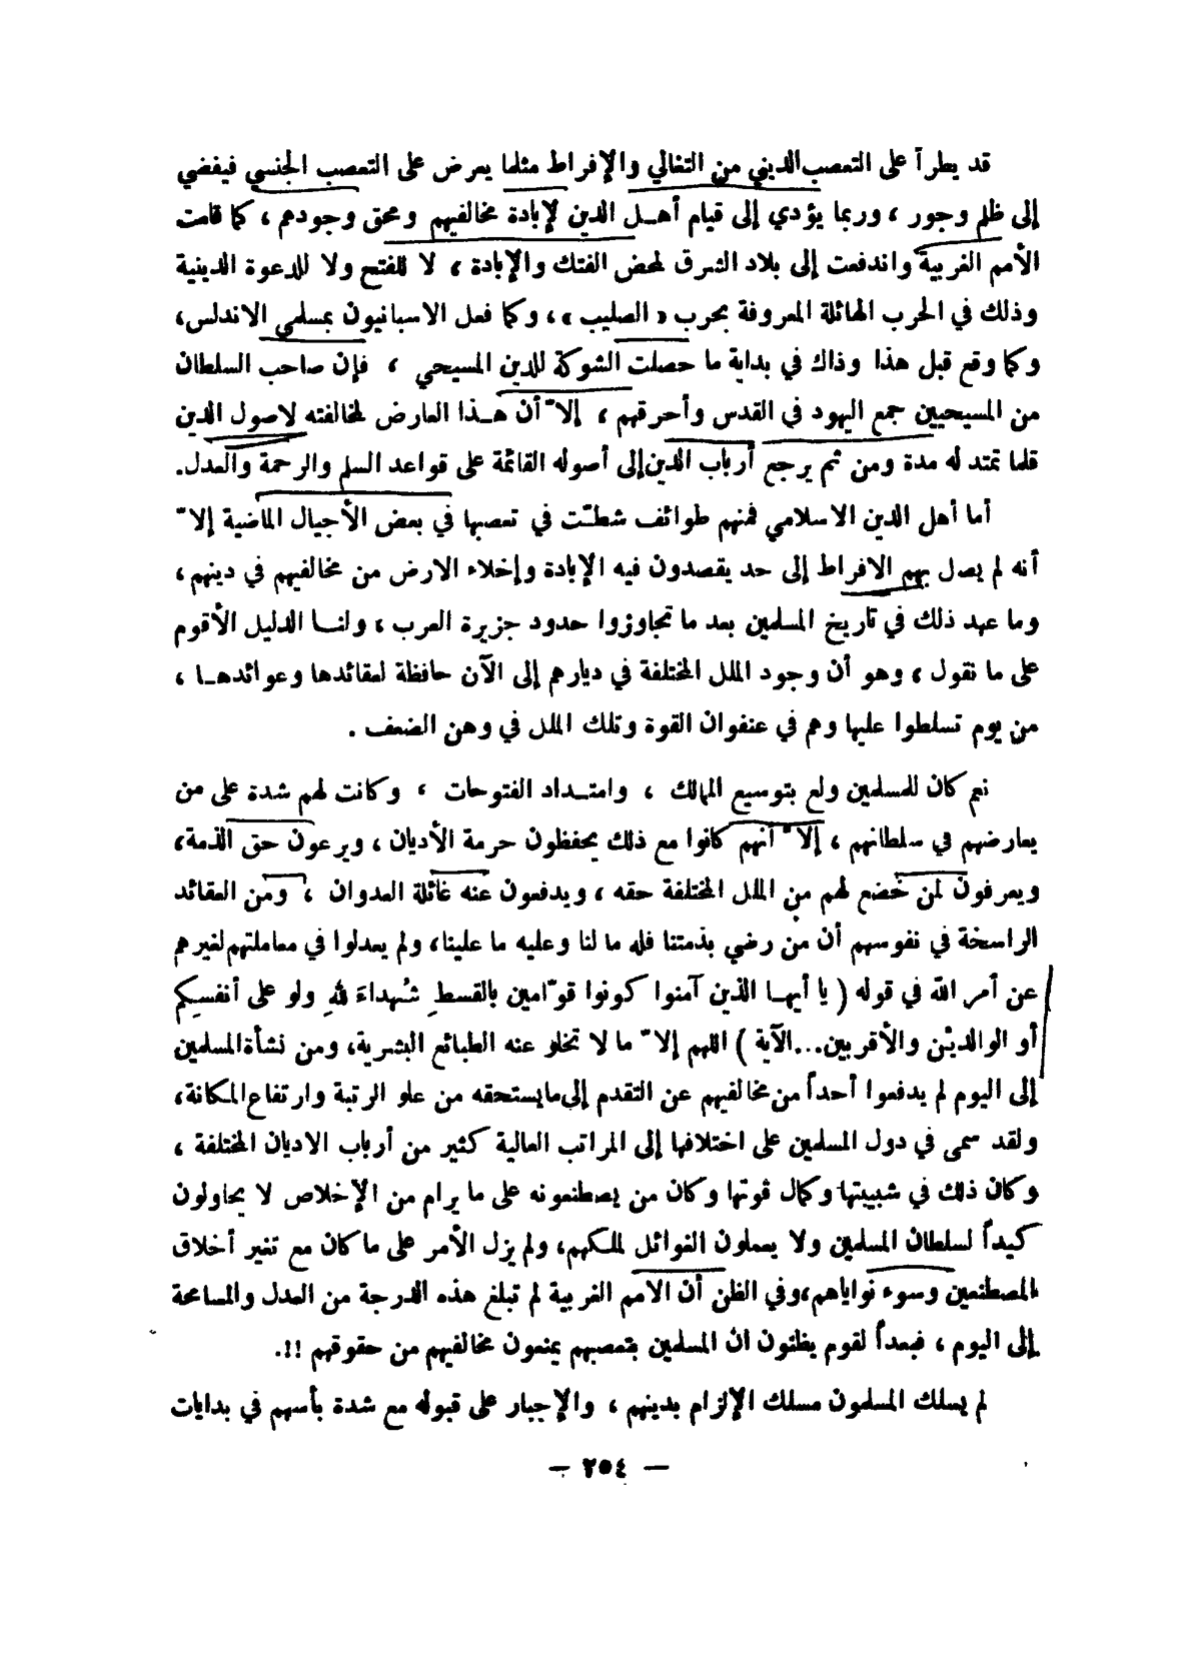 قد يطرأ على التعصب الديني من التغالي والإفراط مثلما يعرض على التعصب الجنسي فيفضي
إلى ظلم وجور ، وربما يؤدي إلى قيام أهـل الدين لإبادة مخالفيهم ومحق وجودهم ، كما قامت
الأمم الغربية واندفعت إلى بلاد الشرق لمحض الفتك والإبادة ، لا للفتح ولا للدعوة الدينية
وذلك في الحرب الهائلة المعروفة بحرب « الصليب » ، وكما فعل الاسبانيون بمسلمي الاندلس،
وكما وقع قبل هذا وذاك في بداية ما حصلت الشوكة للدين المسيحي ، فإن صاحب السلطان
من المسيحيين جمع اليهود في القدس وأحرقهم ، إلاّ أن هـذا العارض لمخالفته لاصول الدين
قلما تمتد له مدة ومن ثم يرجع أرباب الدين إلى أصوله القائمة على قواعد السلم والرحمة والعدل.
أما أهل الدين الاسلامي فمنهم طوائف شطّت في تعصبها في بعض الأجيال الماضية إلاّ
أنه لم يصل بهم الافراط إلى حد يقصدون فيه الإبادة وإخلاء الارض من مخالفيهم في دينهم ،
وما عهد ذلك في تاريخ المسلمين بعد ما تجاوزوا حدود جزيرة العرب ، ولنـا الدليل الأقوم
على ما نقول ، وهو أن وجود الملل المختلفة في ديارهم إلى الآن حافظة لعقائدها وعوائدهـا ،
من يوم تسلطوا عليها وهم في عنفوان القوة وتلك الملل في وهن الضعف .
نعم كان للمسلمين ولع بتوسيع الممالك ، وامتـداد الفتوحات ، وكانت لهم شدة على من
يعارضهم في سلطانهم ، إلاّ أنهم كانوا مع ذلك يحفظون حرمة الأديان ، ويرعون حق الذمة،
ويعرفون لمن خضع لهم من الملل المختلفة حقه ، ويدفعون عنه غائلة العدوان ، ومن العقائد
الراسخة في نفوسهم أن من رضي بذمتنا فله ما لنا وعليه ما علينا، ولم يعدلوا في معاملتهم لغيرهم
عن أمر الله في قوله ( يا أيهـا الذين آمنوا كونوا قوّامين بالقسطِ شُهداءَ للهِ ولو على أنفسِكم
أو الوالديْن والأقربين...الآية ) اللهم إلاّ ما لا تخلو عنه الطبائع البشرية، ومن نشأة المسلمين
إلى اليوم لم يدفعوا أحداً من مخالفيهم عن التقدم إلى ما يستحقه من علو الرتبة وارتفاع المكانة،
ولقد سمى في دول المسلمين على اختلافها إلى المراتب العالية كثير من أرباب الاديان المختلفة ،
وكان ذلك في شبيبتها وكمال قوتها وكان من يصطنعونه على ما يرام من الإخلاص لا يحاولون
كيداً لسلطان المسلمين ولا يعملون الغوائل لملكهم، ولم يزل الأمر على ما كان مع تغير أخلاق
المصطنعين وسوء نواياهم،وفي الظن أن الامم الغربية لم تبلغ هذه الدرجة من العدل والمسامحة
إلى اليوم ، فبعداً لقوم يظنون ان المسلمين بتعصبهم يمنعون مخالفيهم من حقوقهم !!.
لم يسلك المسلمون مسلك الإلزام بدينهم ، والإجبار على قبوله مع شدة بأسهم في بدايات
— ٢٥٤ —